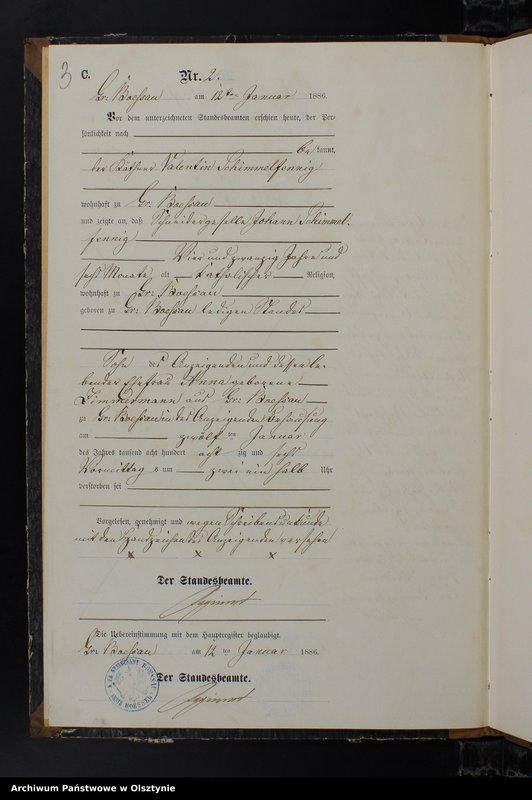 3
C.
Nr. 2.
Gr. Boessau am 12ten Januar 1886.
Vor dem unterzeichneten Standesbeamten erschien heute, der Per-
sönlichkeit nach
bekannt,
der Käthner Valentin Schimmelfennig
wohnhaft zu Gr. Boessau
und zeigte an, daß Schneidergeselle Johann Schimmel-
fennig
Vier und zwanzig Jahre und
sechs Monate, alt katholischer Religion,
wohnhaft zu Gr. Boessau
geboren zu Gr. Boessau ledigen Standes
Sohn des Anzeigenden und dessen le-
benden Ehefrau Anna geborene
Zimmermann aus Gr. Boessau
zu Gr. Boessau in des Anzeigenden Behausung
am zwölf ten Januar
des Jahres tausend acht hundert acht zig und sechs
Vormittags um zwei ein halb Uhr
verstorben sei
Vorgelesen, genehmigt und wegen Schreibensunkunde
mit den Handzeichen des Anzeigenden versehen
x x x
Der Standesbeamte.
Die Uebereinstimmung mit dem Hauptregister beglaubigt.
Gr. Boessau am 12 ten Januar 1886.
Der Standesbeamte.
KREIS ROESSEL
Archiwum Państwowe w Olsztynie